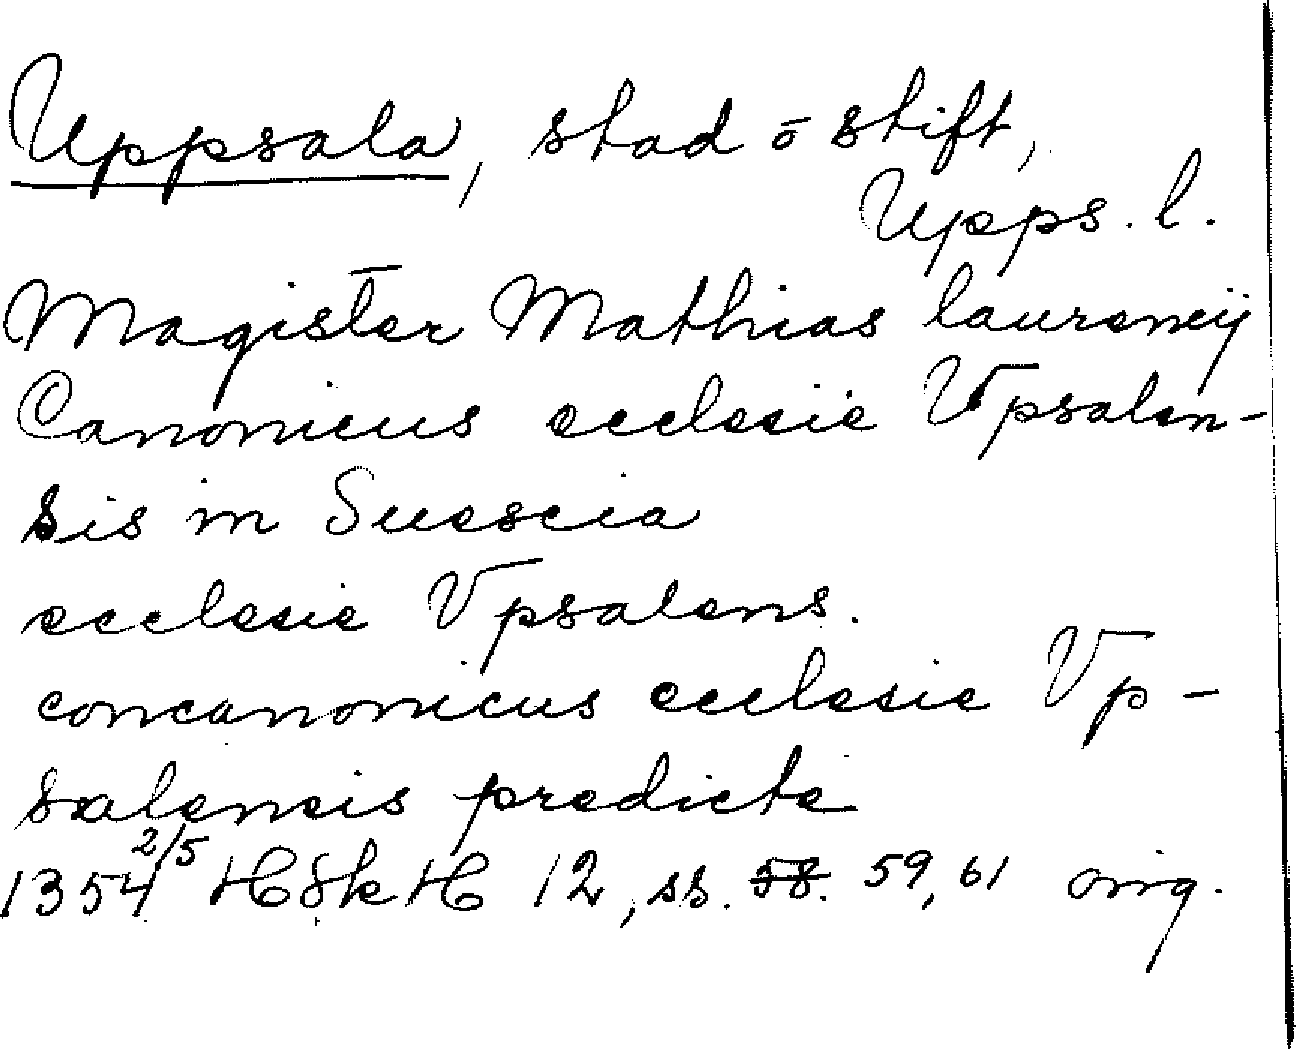 Uppsala, stad o stift,
Upps. l.
Magister Mathias laurencij
Canonicus ecclesie Vpsalen-
sis in Suescia
ecclesie Vpsalens.
concanonicus ecclesie Vp-
salensis predicte
1354 2/5 HSkH 12, ss. 58. 59, 61 orig.